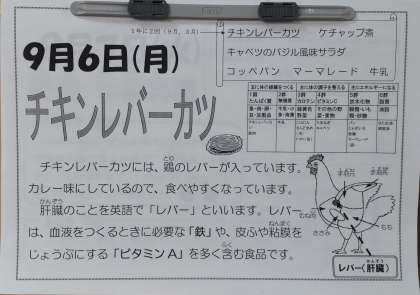 1年に2回(9月、3月)
チキンレバーカツ ケチャップ煮
キャベツのバジル風味サラダ
コッペパン マーマレード 牛乳
9月6日(月)
チキンレバーカツ
主に体の組織をつくる 主に体の調子を整える 主にエネルギーになる
1群 2群 3群 4群 5群 6群
たんぱく質 無機質 カロテン ビタミンC 炭水化物 脂質
チキンレバーカツには、鶏のレバーが入っています。
カレー味にしているので、食べやすくなっています。
肝臓のことを英語で「レバー」といいます。レバー
は、血液をつくるときに必要な「鉄」や、皮ふや粘膜を
じょうぶにする「ビタミンA」を多く含む食品です。
むね肉
ささみ
もも
レバー(肝臓)